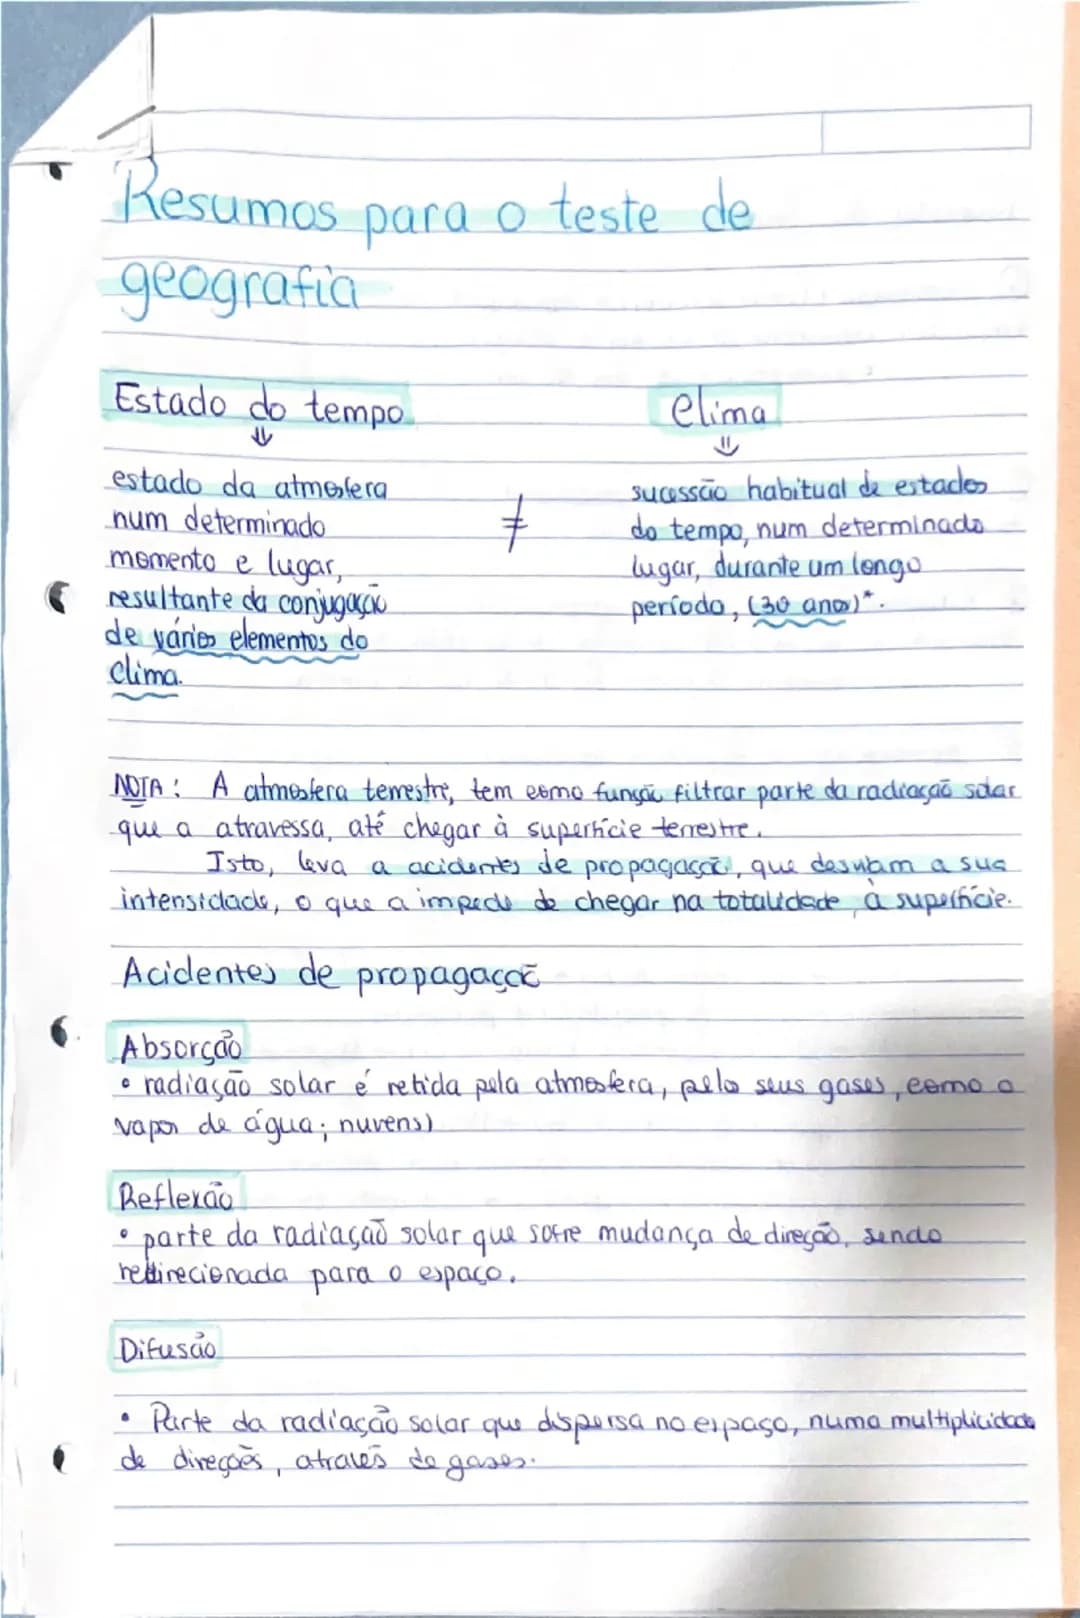 Resumos para o teste de
geografia
Estado do tempo
⇓
estado da atmosfera
num determinado
momento e lugar,
resultante da conjugação
de vários elementos do
clima.
≠
Clima
⇓
sucessão habitual de estados
do tempo, num determinado
lugar, durante um longo
período, (30 anos)*.
NOTA: A atmosfera terrestre, tem como função filtrar parte da radiação solar
que a atravessa, até chegar à superfície terrestre.
Isto, leva a acidentes de propagação, que desviam a sua
intensidade, o que a impede de chegar na totalidade à superfície.
Acidentes de propagação
Absorção
• radiação solar é retida pela atmosfera, pelo seus gases, como o
vapor de água; nuvens)
Reflexão
• parte da radiação solar que sofre mudança de direção, sendo
redirecionada para o espaço.
Difusão
• Parte da radiação solar que dispersa no espaço, numa multiplicidade
de direções, através de gases.